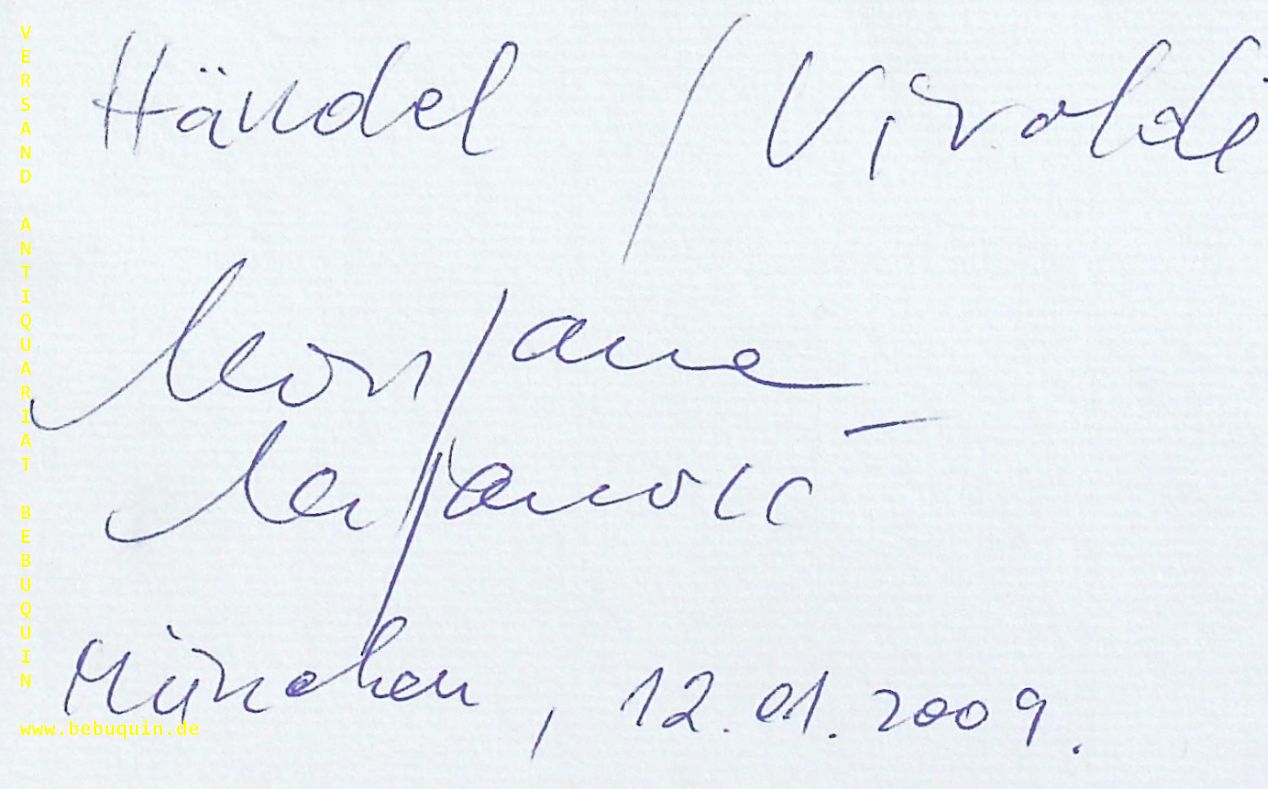 Händel / Vivaldi
Marijana
Mijanović
München, 12.01.2009.
VERSAND ANTIQUARIAT BEBUQUIN
www.bebuquin.de